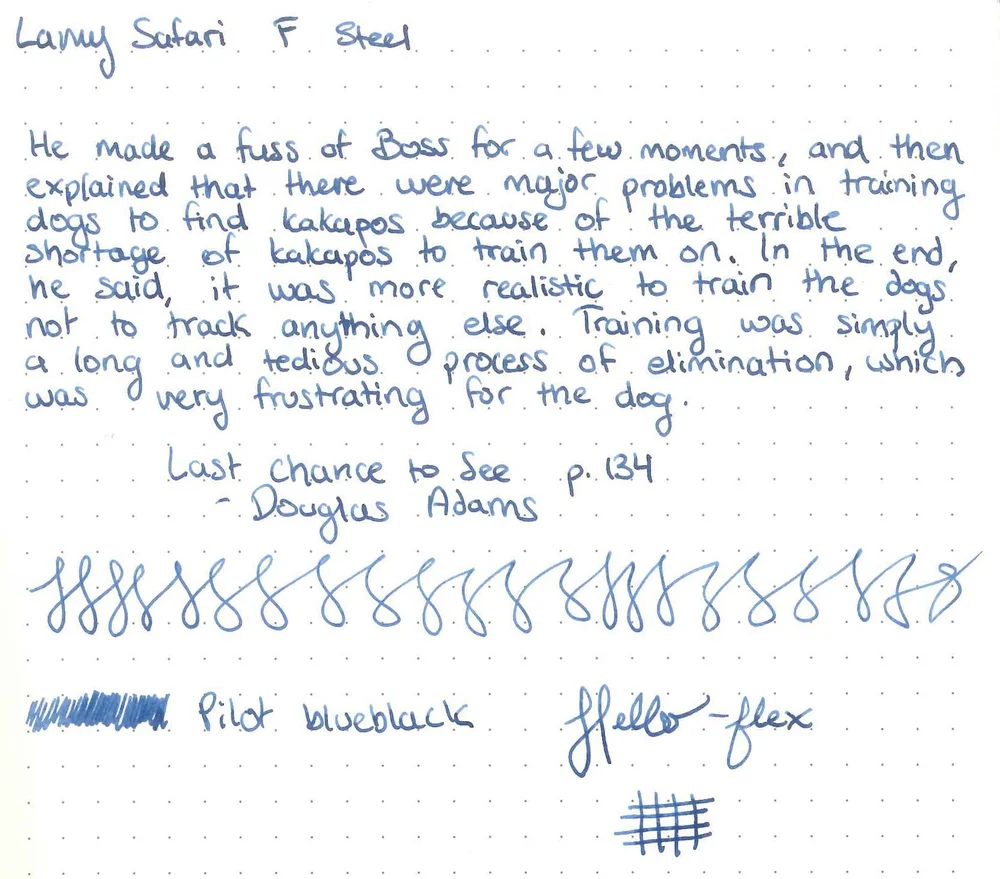 Lamy Safari F Steel
He made a fuss of Boss for a few moments, and then
explained that there were major problems in training
dogs to find kakapos because of the terrible
shortage of kakapos to train them on. In the end,
he said, it was more realistic to train the dogs
not to track anything else. Training was simply
a long and tedious process of elimination, which
was very frustrating for the dog.
Last Chance to See p. 134
- Douglas Adams
Pilot blueblack
Hello - flex